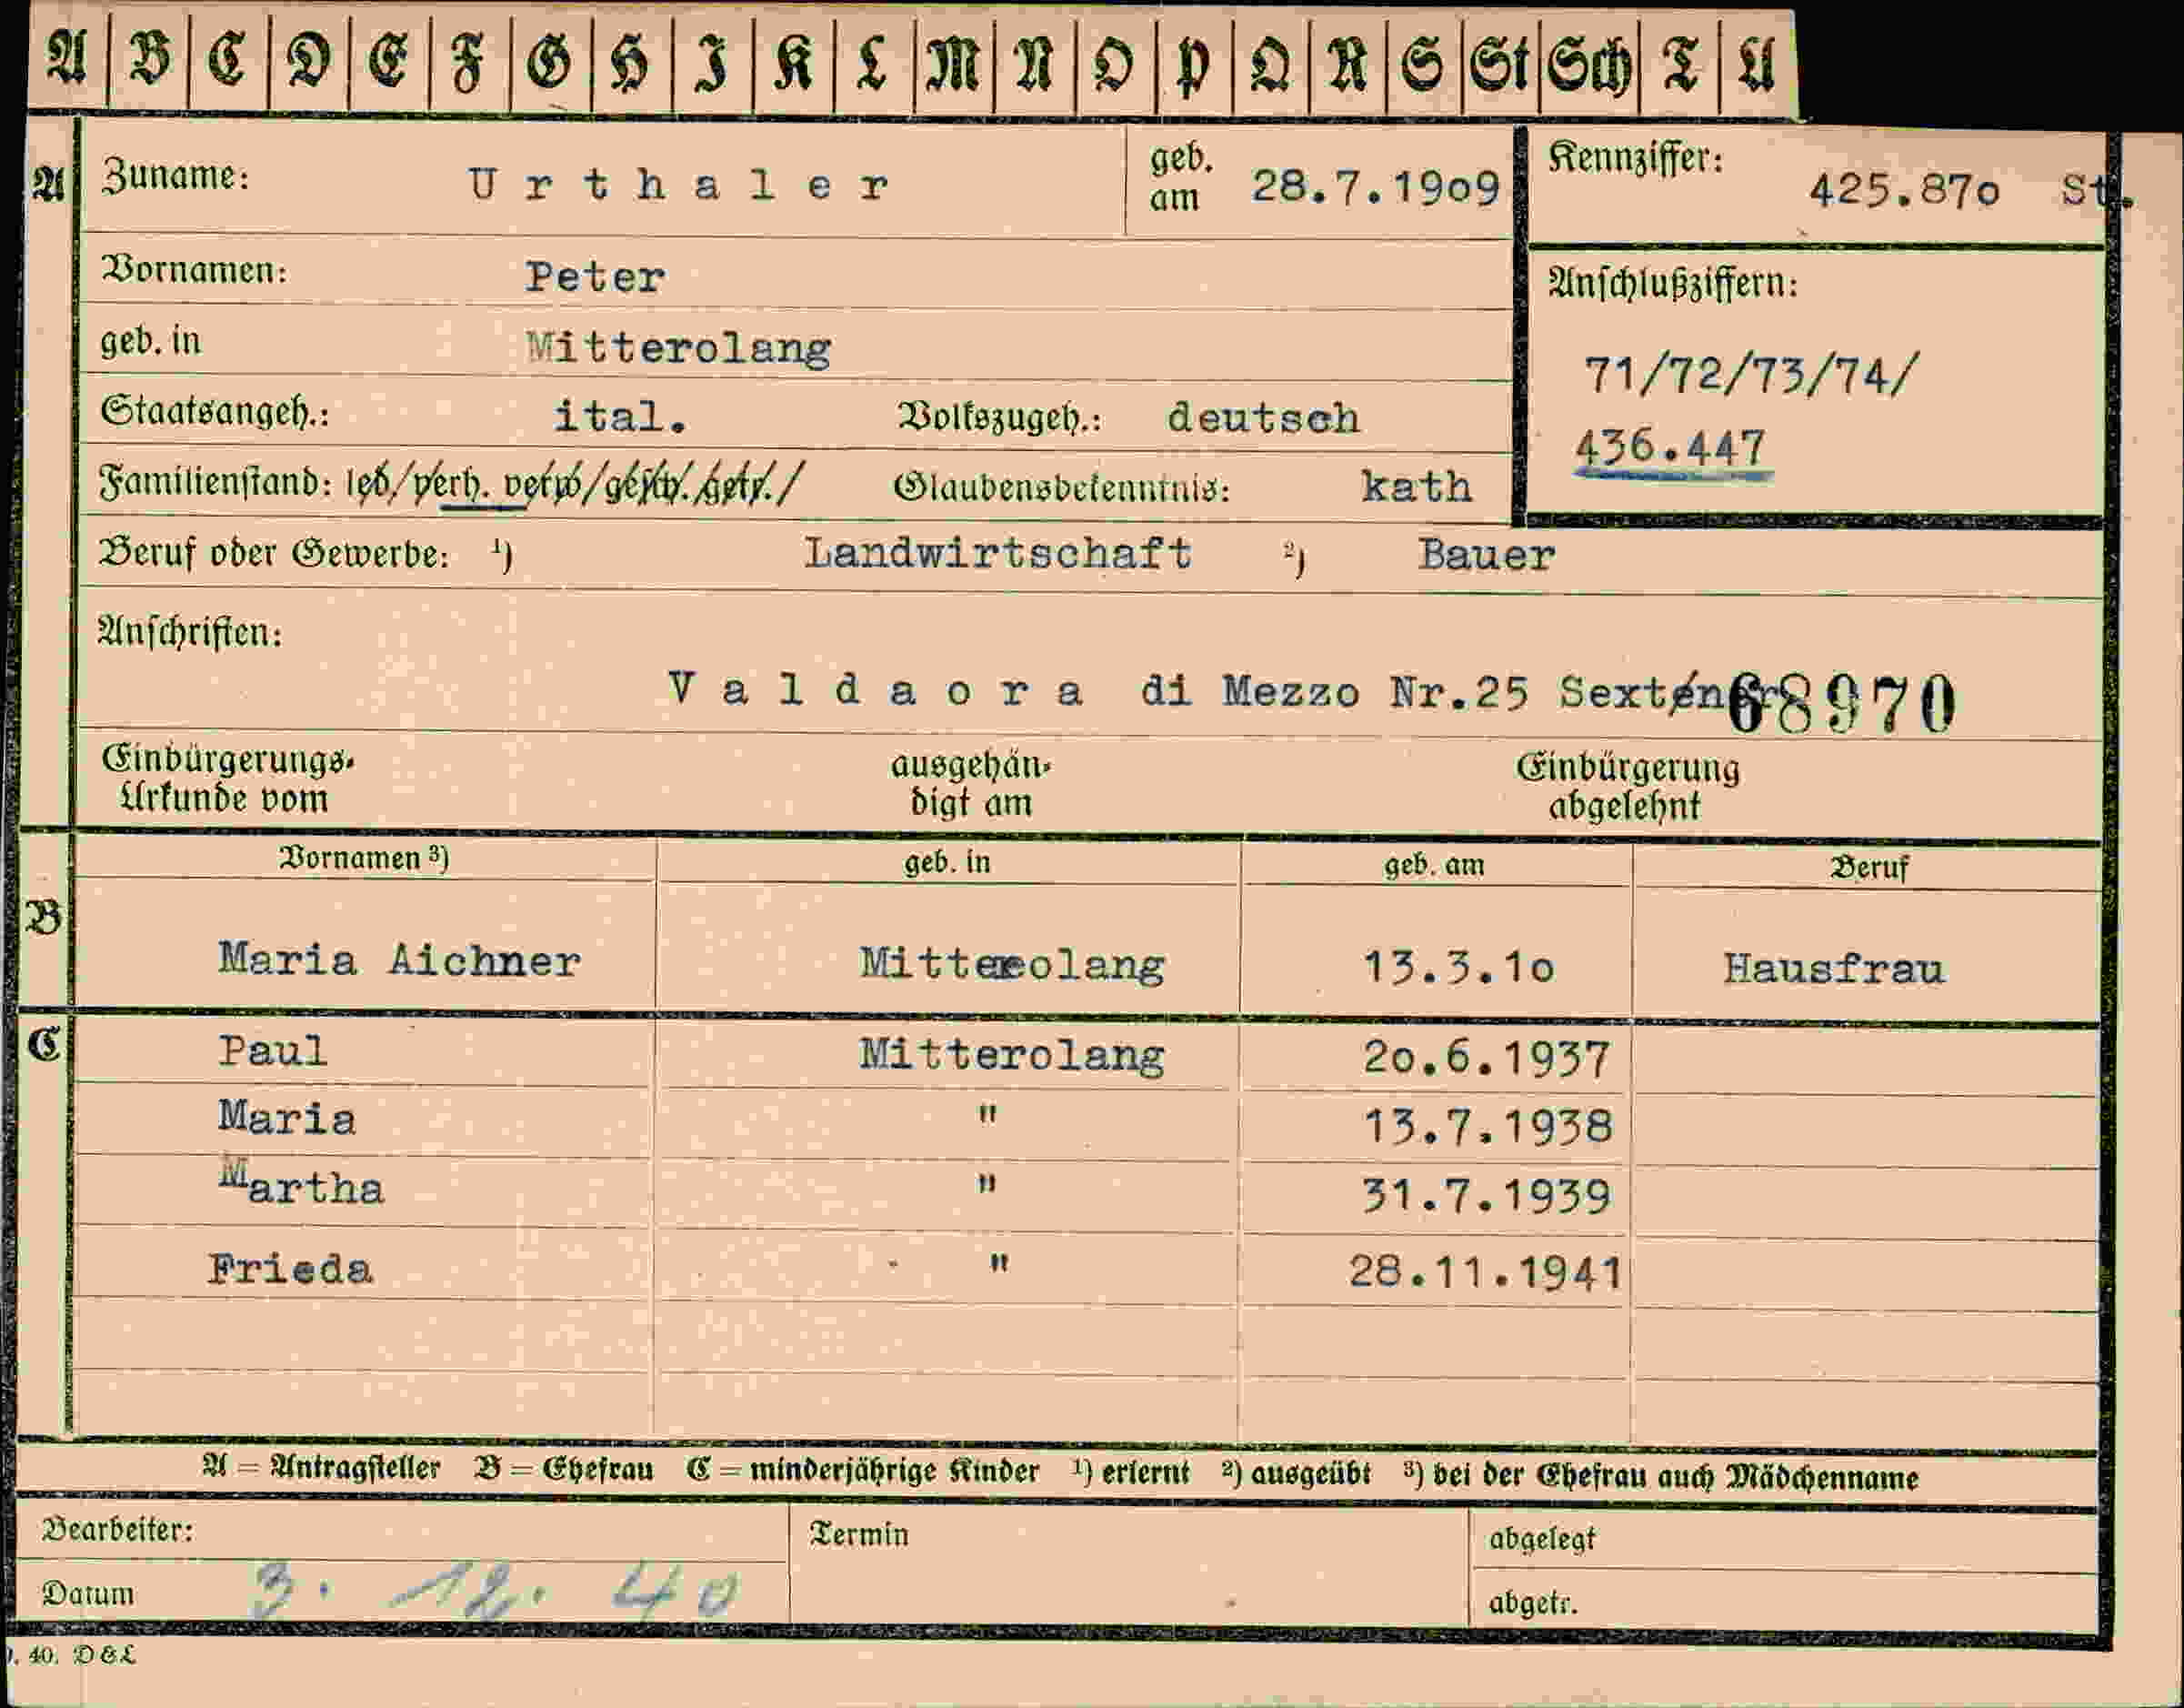 A B C D E F G H I K L M N O P Q R S St Sch T U
A Zuname: Urthaler geb. am 28.7.19o9 Kennziffer: 425.87o St.
Vornamen: Peter
Anschlußziffern:
geb. in Mitterolang
71/72/73/74/
Staatsangeh.: ital. Volkszugeh.: deutsch
436.447
Familienstand: led/verh. verw/gesch./getr./ Glaubensbekenntnis: kath
Beruf oder Gewerbe: ¹) Landwirtschaft ²) Bauer
Anschriften:
Valdaora di Mezzo Nr.25 Sexten 68970
Einbürgerungs- ausgehän- Einbürgerung
Urkunde vom digt am abgelehnt
Vornamen ³) geb. in geb. am Beruf
B
Maria Aichner Mitterolang 13.3.1o Hausfrau
C Paul Mitterolang 2o.6.1937
Maria " 13.7.1938
Martha " 31.7.1939
Frieda " 28.11.1941
A = Antragsteller B = Ehefrau C = minderjährige Kinder ¹) erlernt ²) ausgeübt ³) bei der Ehefrau auch Mädchenname
Bearbeiter: Termin abgelegt
Datum 3. 12. 40 abgetr.
. 40. D & L